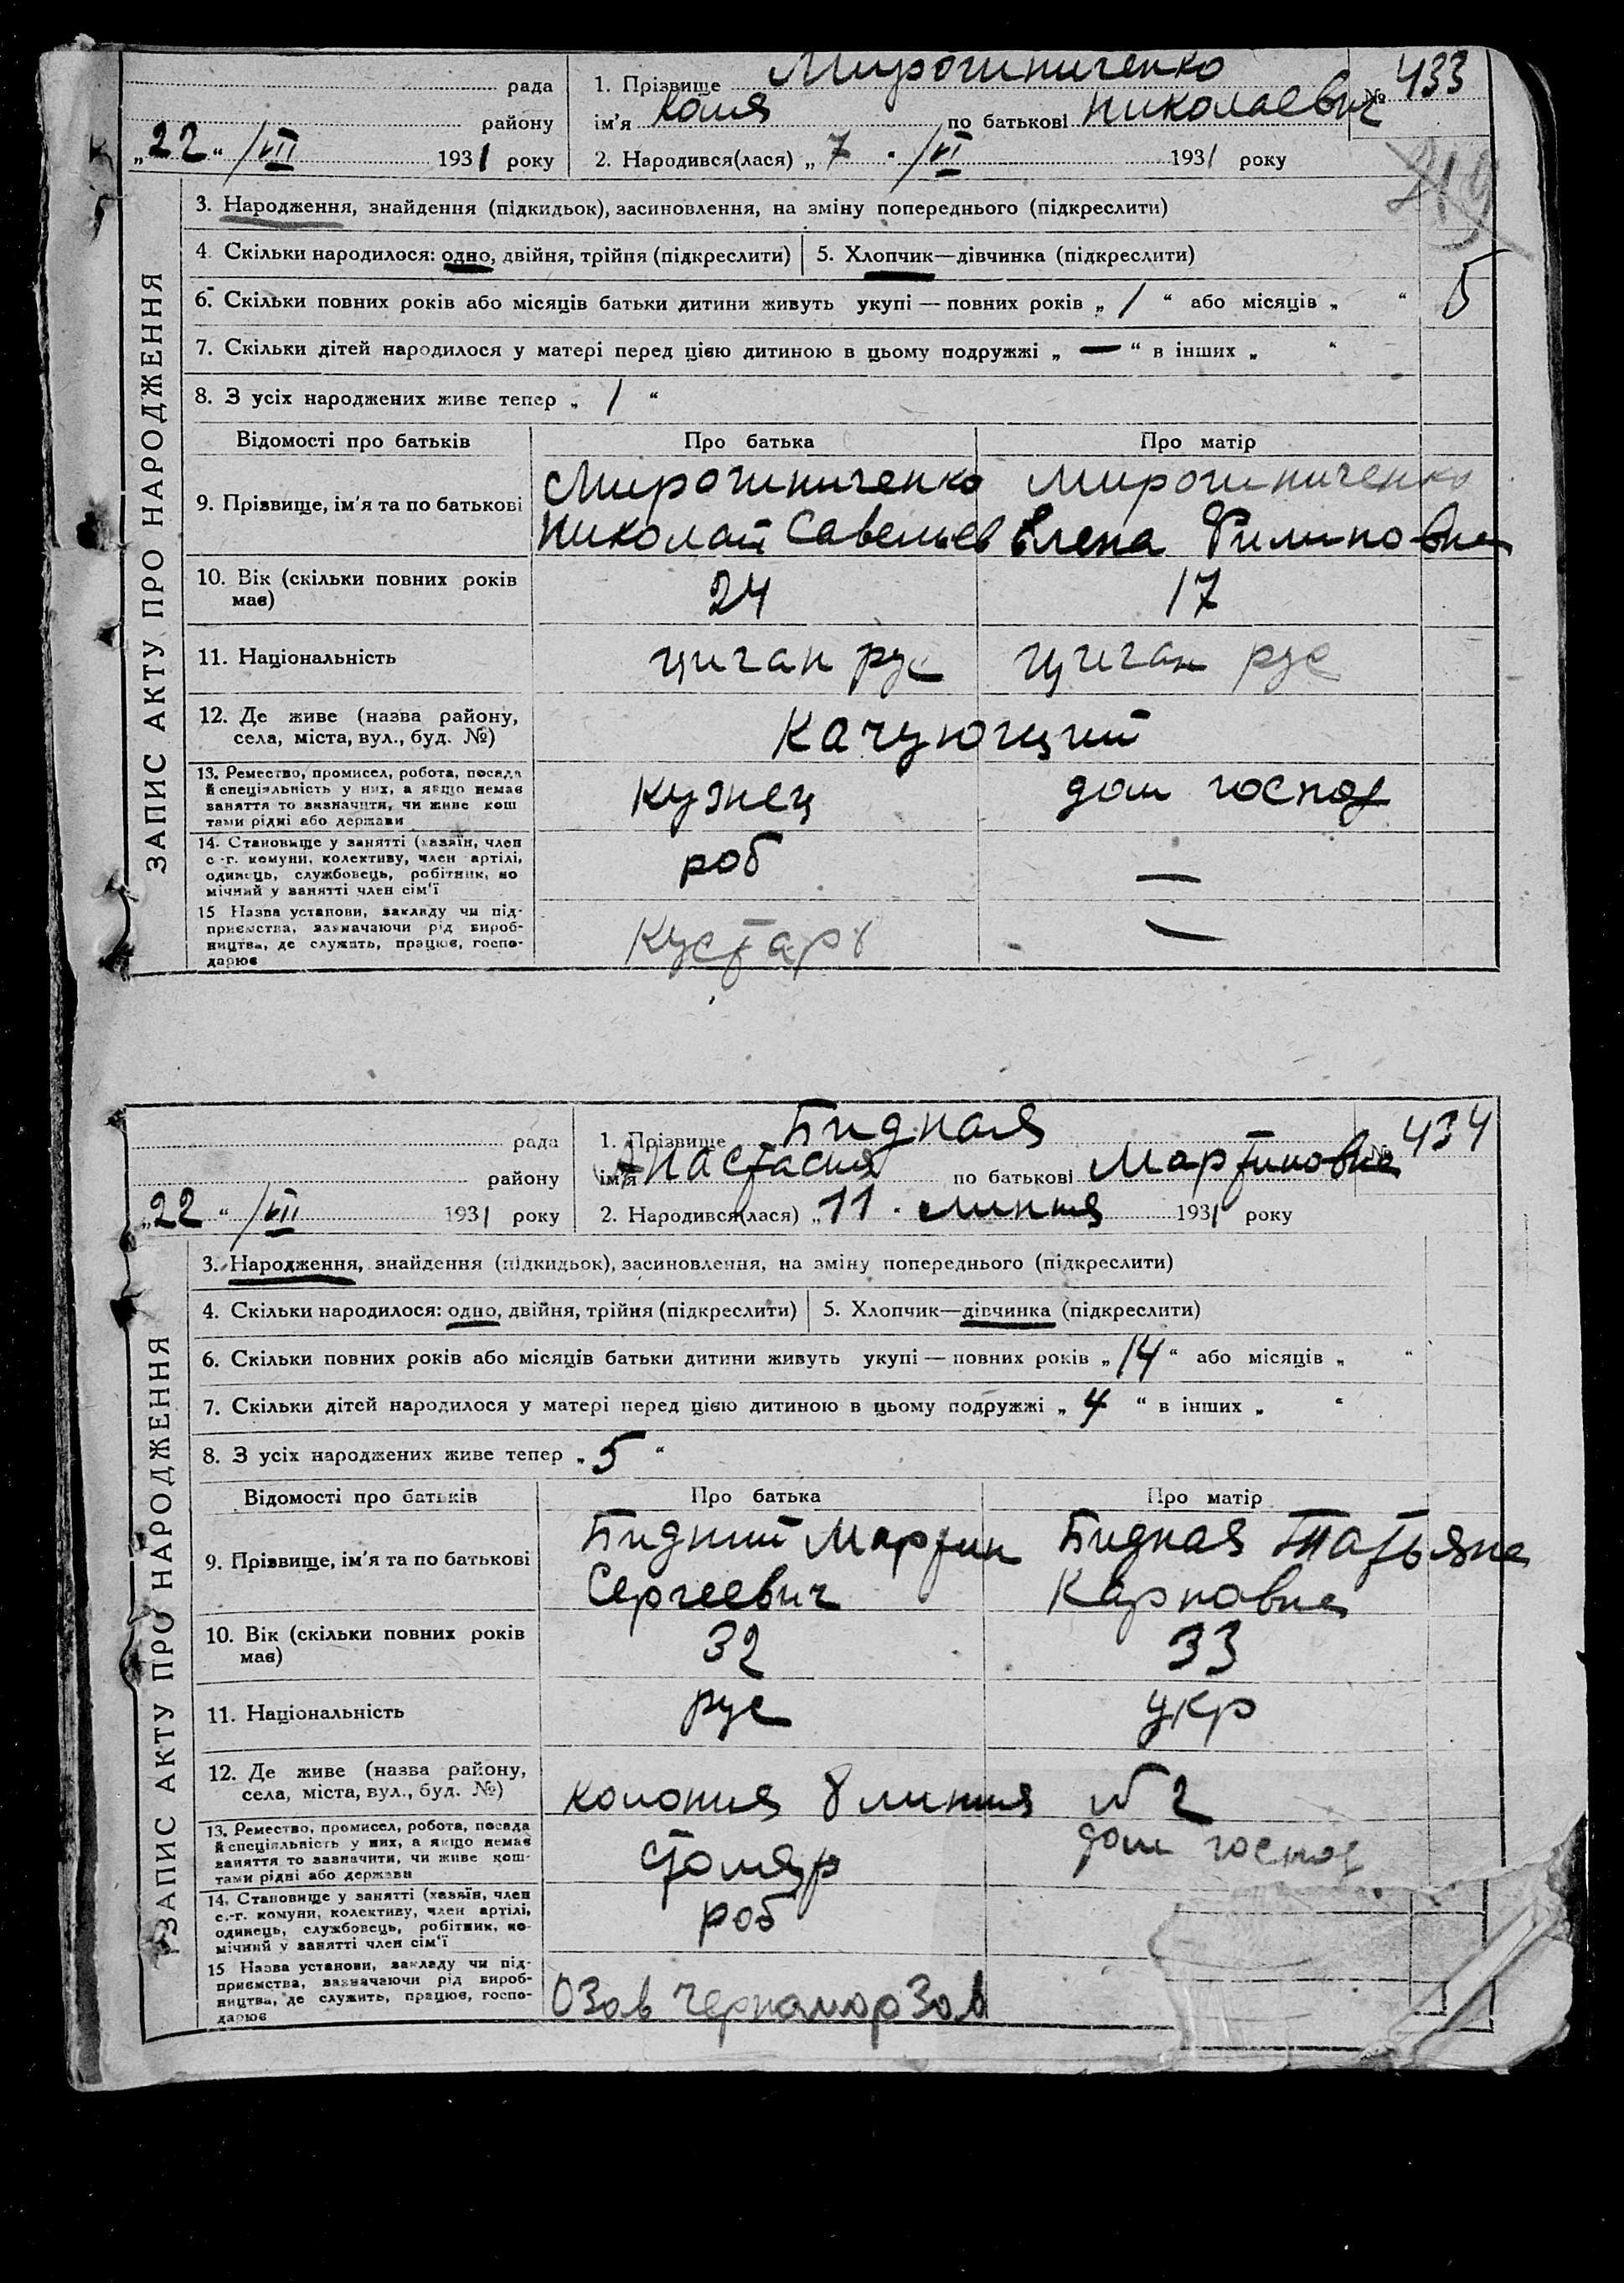 рада
1. Прізвище Мирошниченко
№ 433
району
ім'я Коля по батькові Николаевич
„22“ /VII 1931 року
2. Народився(лася) „7 “ /VI 1931 року
ЗАПИС АКТУ ПРО НАРОДЖЕННЯ
3. Народження, знайдення (підкидьок), засиновлення, на зміну попереднього (підкреслити)
4. Скільки народилося: одно, двійня, трійня (підкреслити) 5. Хлопчик—дівчинка (підкреслити)
6. Скільки повних років або місяців батьки дитини живуть укупі — повних років „ 1 “ або місяців „ “
5
7. Скільки дітей народилося у матері перед цією дитиною в цьому подружжі „ — “ в інших „ “
8. З усіх народжених живе тепер „ 1 “
Відомості про батьків Про батька Про матір
9. Прізвище, ім'я та по батькові
Мирошниченко Мирошниченко
Николай Савельев Елена Филиповна
10. Вік (скільки повних років
має)
24 17
11. Національність циган рус циган рус
12. Де живе (назва району,
села, міста, вул., буд. №)
Качующий
13. Ремество, промисел, робота, посада
й спеціяльність у них, а якщо немає
заняття то зазначити, чи живе кош
тами рідні або держави
кузнец дом господ
14. Становище у занятті (хазяїн, член
с.-г. комуни, колективу, член артілі,
одинець, службовець, робітник, по
мічний у занятті член сім'ї
роб —
15 Назва установи, закладу чи під-
приємства, зазначаючи рід вироб-
ництва, де служить, працює, госпо-
дарює
Кустарь —
рада
1. Прізвище Бидная
№ 434
району
ім'я Анастасия по батькові Мартиновна
„22“ /VII 1931 року
2. Народився(лася) „11 “ липня 1931 року
ЗАПИС АКТУ ПРО НАРОДЖЕННЯ
3. Народження, знайдення (підкидьок), засиновлення, на зміну попереднього (підкреслити)
4. Скільки народилося: одно, двійня, трійня (підкреслити) 5. Хлопчик—дівчинка (підкреслити)
6. Скільки повних років або місяців батьки дитини живуть укупі — повних років „ 14 “ або місяців „ “
7. Скільки дітей народилося у матері перед цією дитиною в цьому подружжі „ 4 “ в інших „ “
8. З усіх народжених живе тепер „ 5 “
Відомості про батьків Про батька Про матір
9. Прізвище, ім'я та по батькові
Бидний Мартин Бидная Татьяна
Сергеевич Карповна
10. Вік (скільки повних років
має)
32 33
11. Національність рус укр
12. Де живе (назва району,
села, міста, вул., буд. №)
колония 8 линия № 2
13. Ремество, промисел, робота, посада
й спеціяльність у них, а якщо немає
заняття то зазначити, чи живе кош-
тами рідні або держави
столяр дом господ
14. Становище у занятті (хазяїн, член
с.-г. комуни, колективу, член артілі,
одинець, службовець, робітник, по-
мічний у занятті член сім'ї
роб
15 Назва установи, закладу чи під-
приємства, зазначаючи рід вироб-
ництва, де служить, працює, госпо-
дарює